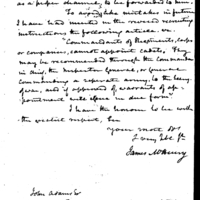 as a proper channel, to be forwarded to him.
To avoid like mistakes in future
I have had inserted in the revised recruiting
instructions the following article. viz.
"Commandants of Regiments, corps
or companies, cannot appoint cadets, They
may be recommended through the Commandant
in Chief, the Inspector General, or general
Commanding a separate army, to the Secy
of war, and if approved of warrants of ap-
pointment will issue in due form"
I have the honour to be with
the
Your most Ob
James McHenry
John Adams